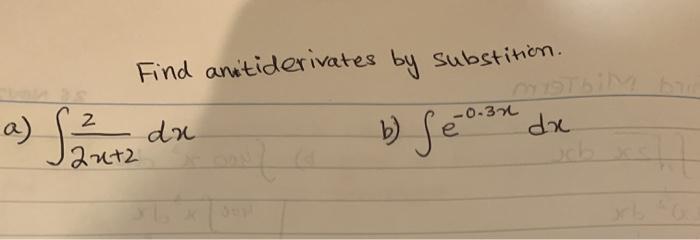 Find anitiderivates by substition.
a) ∫ 2/(2x+2) dx b) ∫ e^(-0.3x) dx